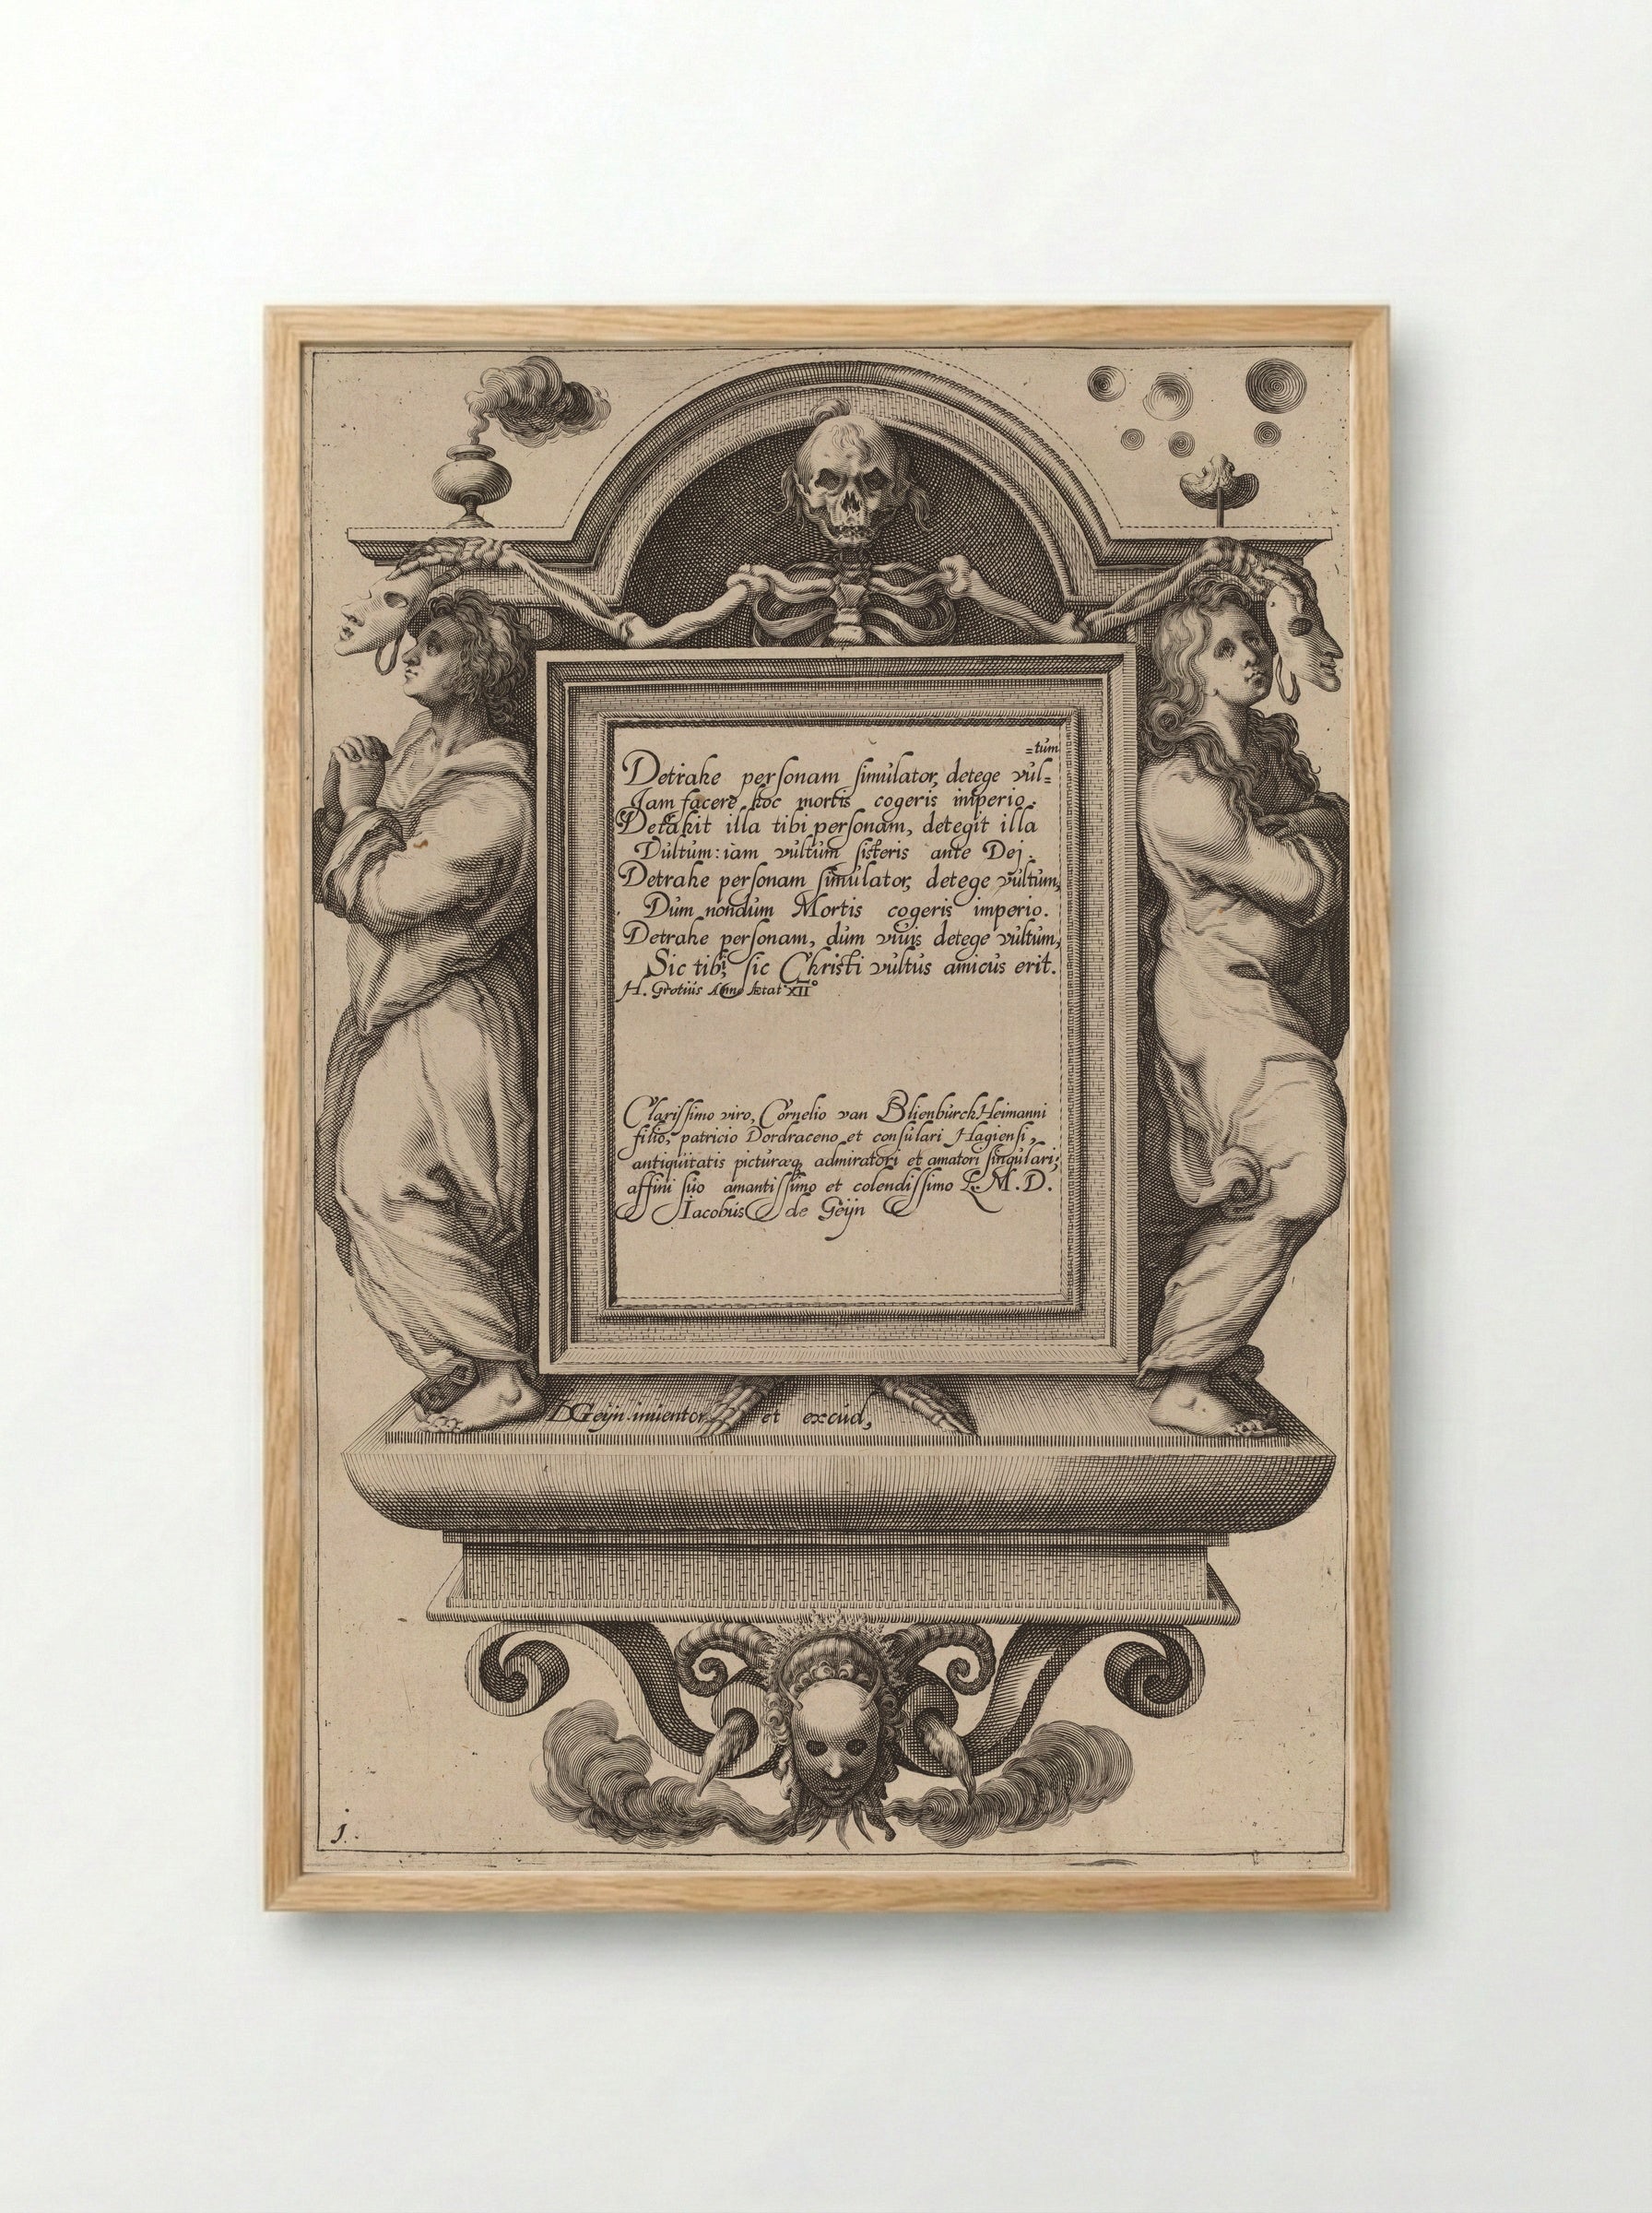 =tum
Detrahe personam simulator, detege vul=
Jam facere hoc mortis cogeris imperio.
Detrahit illa tibi personam, detegit illa
Vultum: iam vultum sisteris ante Dei.
Detrahe personam simulator, detege vultum,
Dum nondum Mortis cogeris imperio.
Detrahe personam, dum viuis detege vultum,
Sic tibi, sic Christi vultus amicus erit.
H. Grotius Anno Ætat XII°
Clarissimo viro, Cornelio van Blienburck Heimanni
filio, patricio Dordraceno et consulari Hagiensi,
antiquitatis picturæq, admiratori et amatori singulari;
affini suo amantissimo et colendissimo L.M.D.
Iacobus de Geijn
DGeijn inuentor et excud,
1.